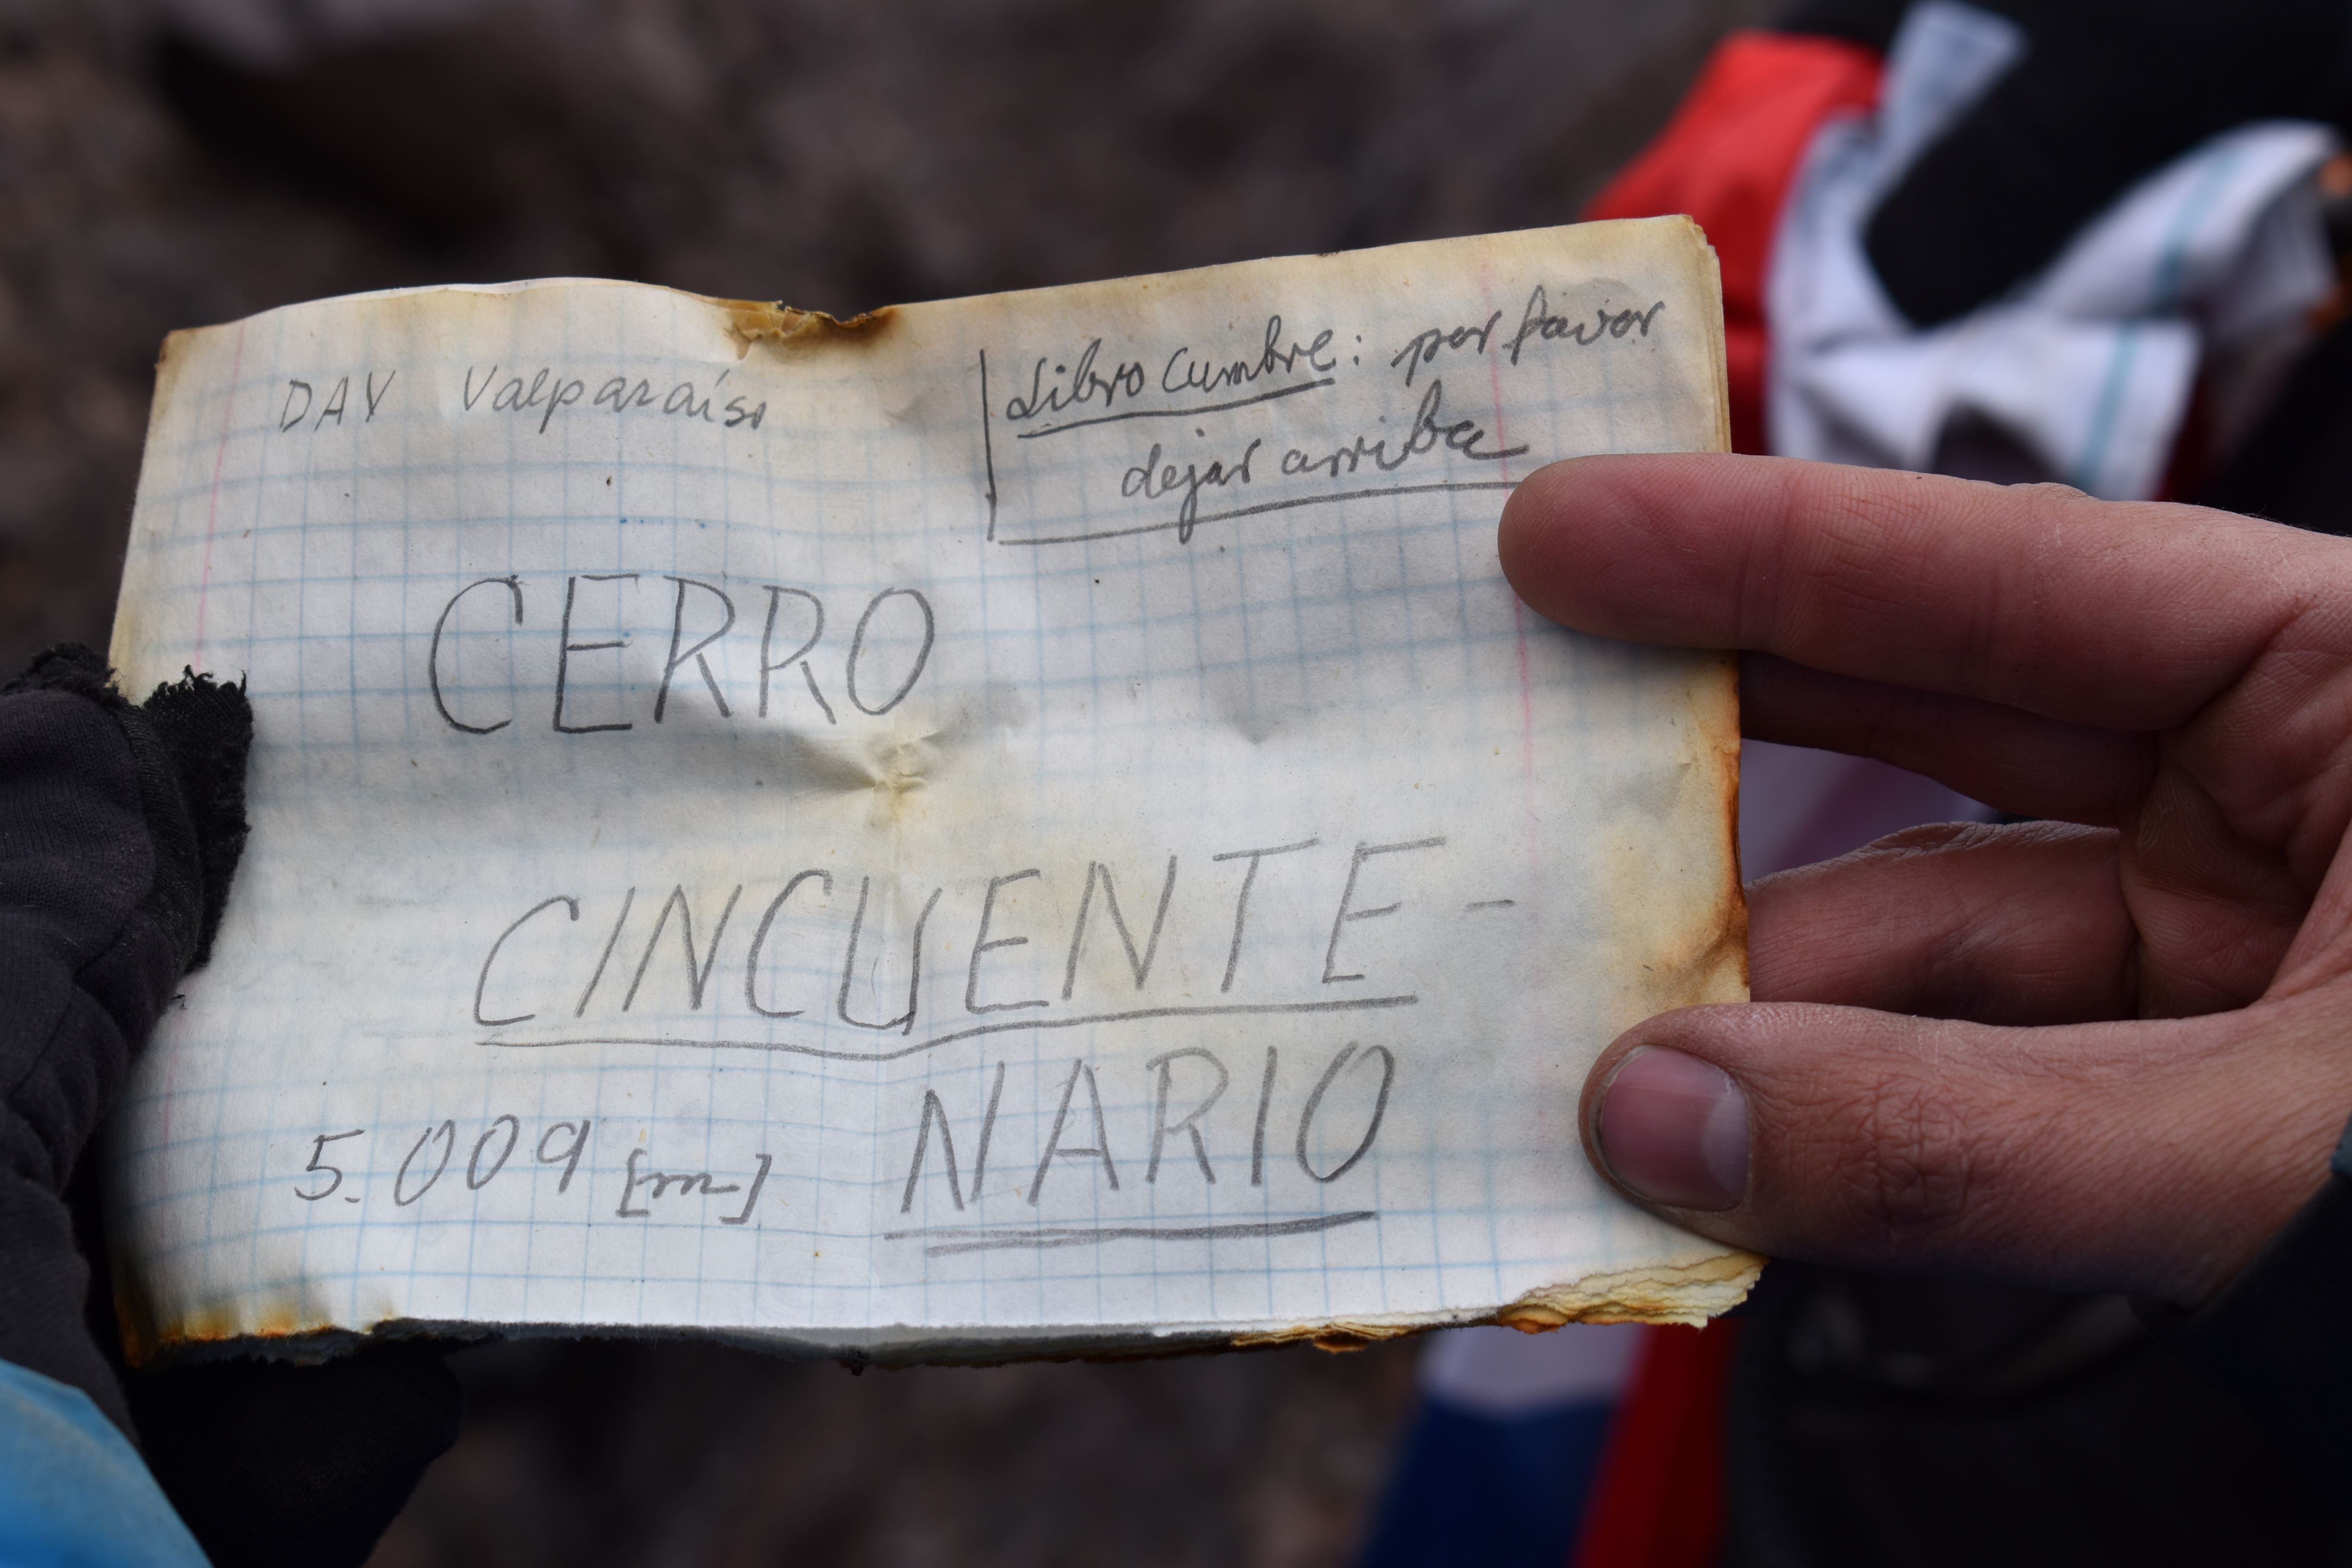 DAV Valparaíso
Libro Cumbre: por favor
dejar arriba
CERRO
CINCUENTE-
NARIO
5.009 [m]